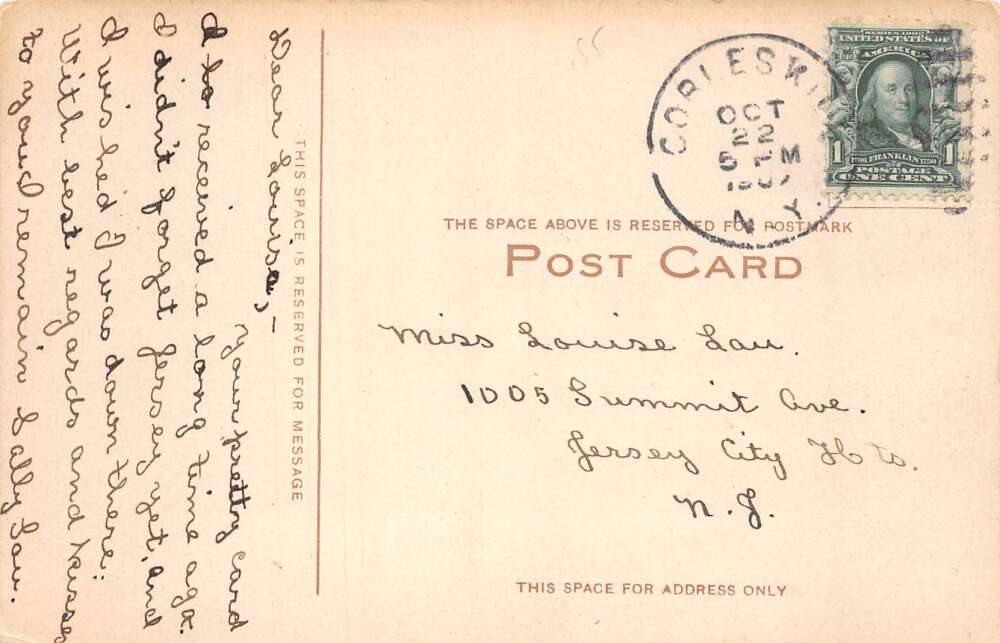 Dear Louise, –
Your pretty card
I ho received a long time ago.
I didn't forget Jersey yet, and
I wished I was down there.
With best regards and kisses
to you I remain Sally Lau.
THIS SPACE IS RESERVED FOR MESSAGE
55
OCT
22
5 PM
1907
N.Y.
SERIES 1902
UNITED STATES OF
AMERICA
1 1
1706 FRANKLIN 1790
POSTAGE
ONE CENT
THE SPACE ABOVE IS RESERVED FOR POSTMARK
POST CARD
Miss Louise Lau.
1005 Summit Ave.
Jersey City Hts.
N.J.
THIS SPACE FOR ADDRESS ONLY